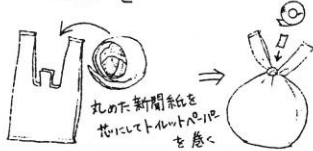 丸めた新聞紙を
芯にしてトイレットペーパー
を巻く